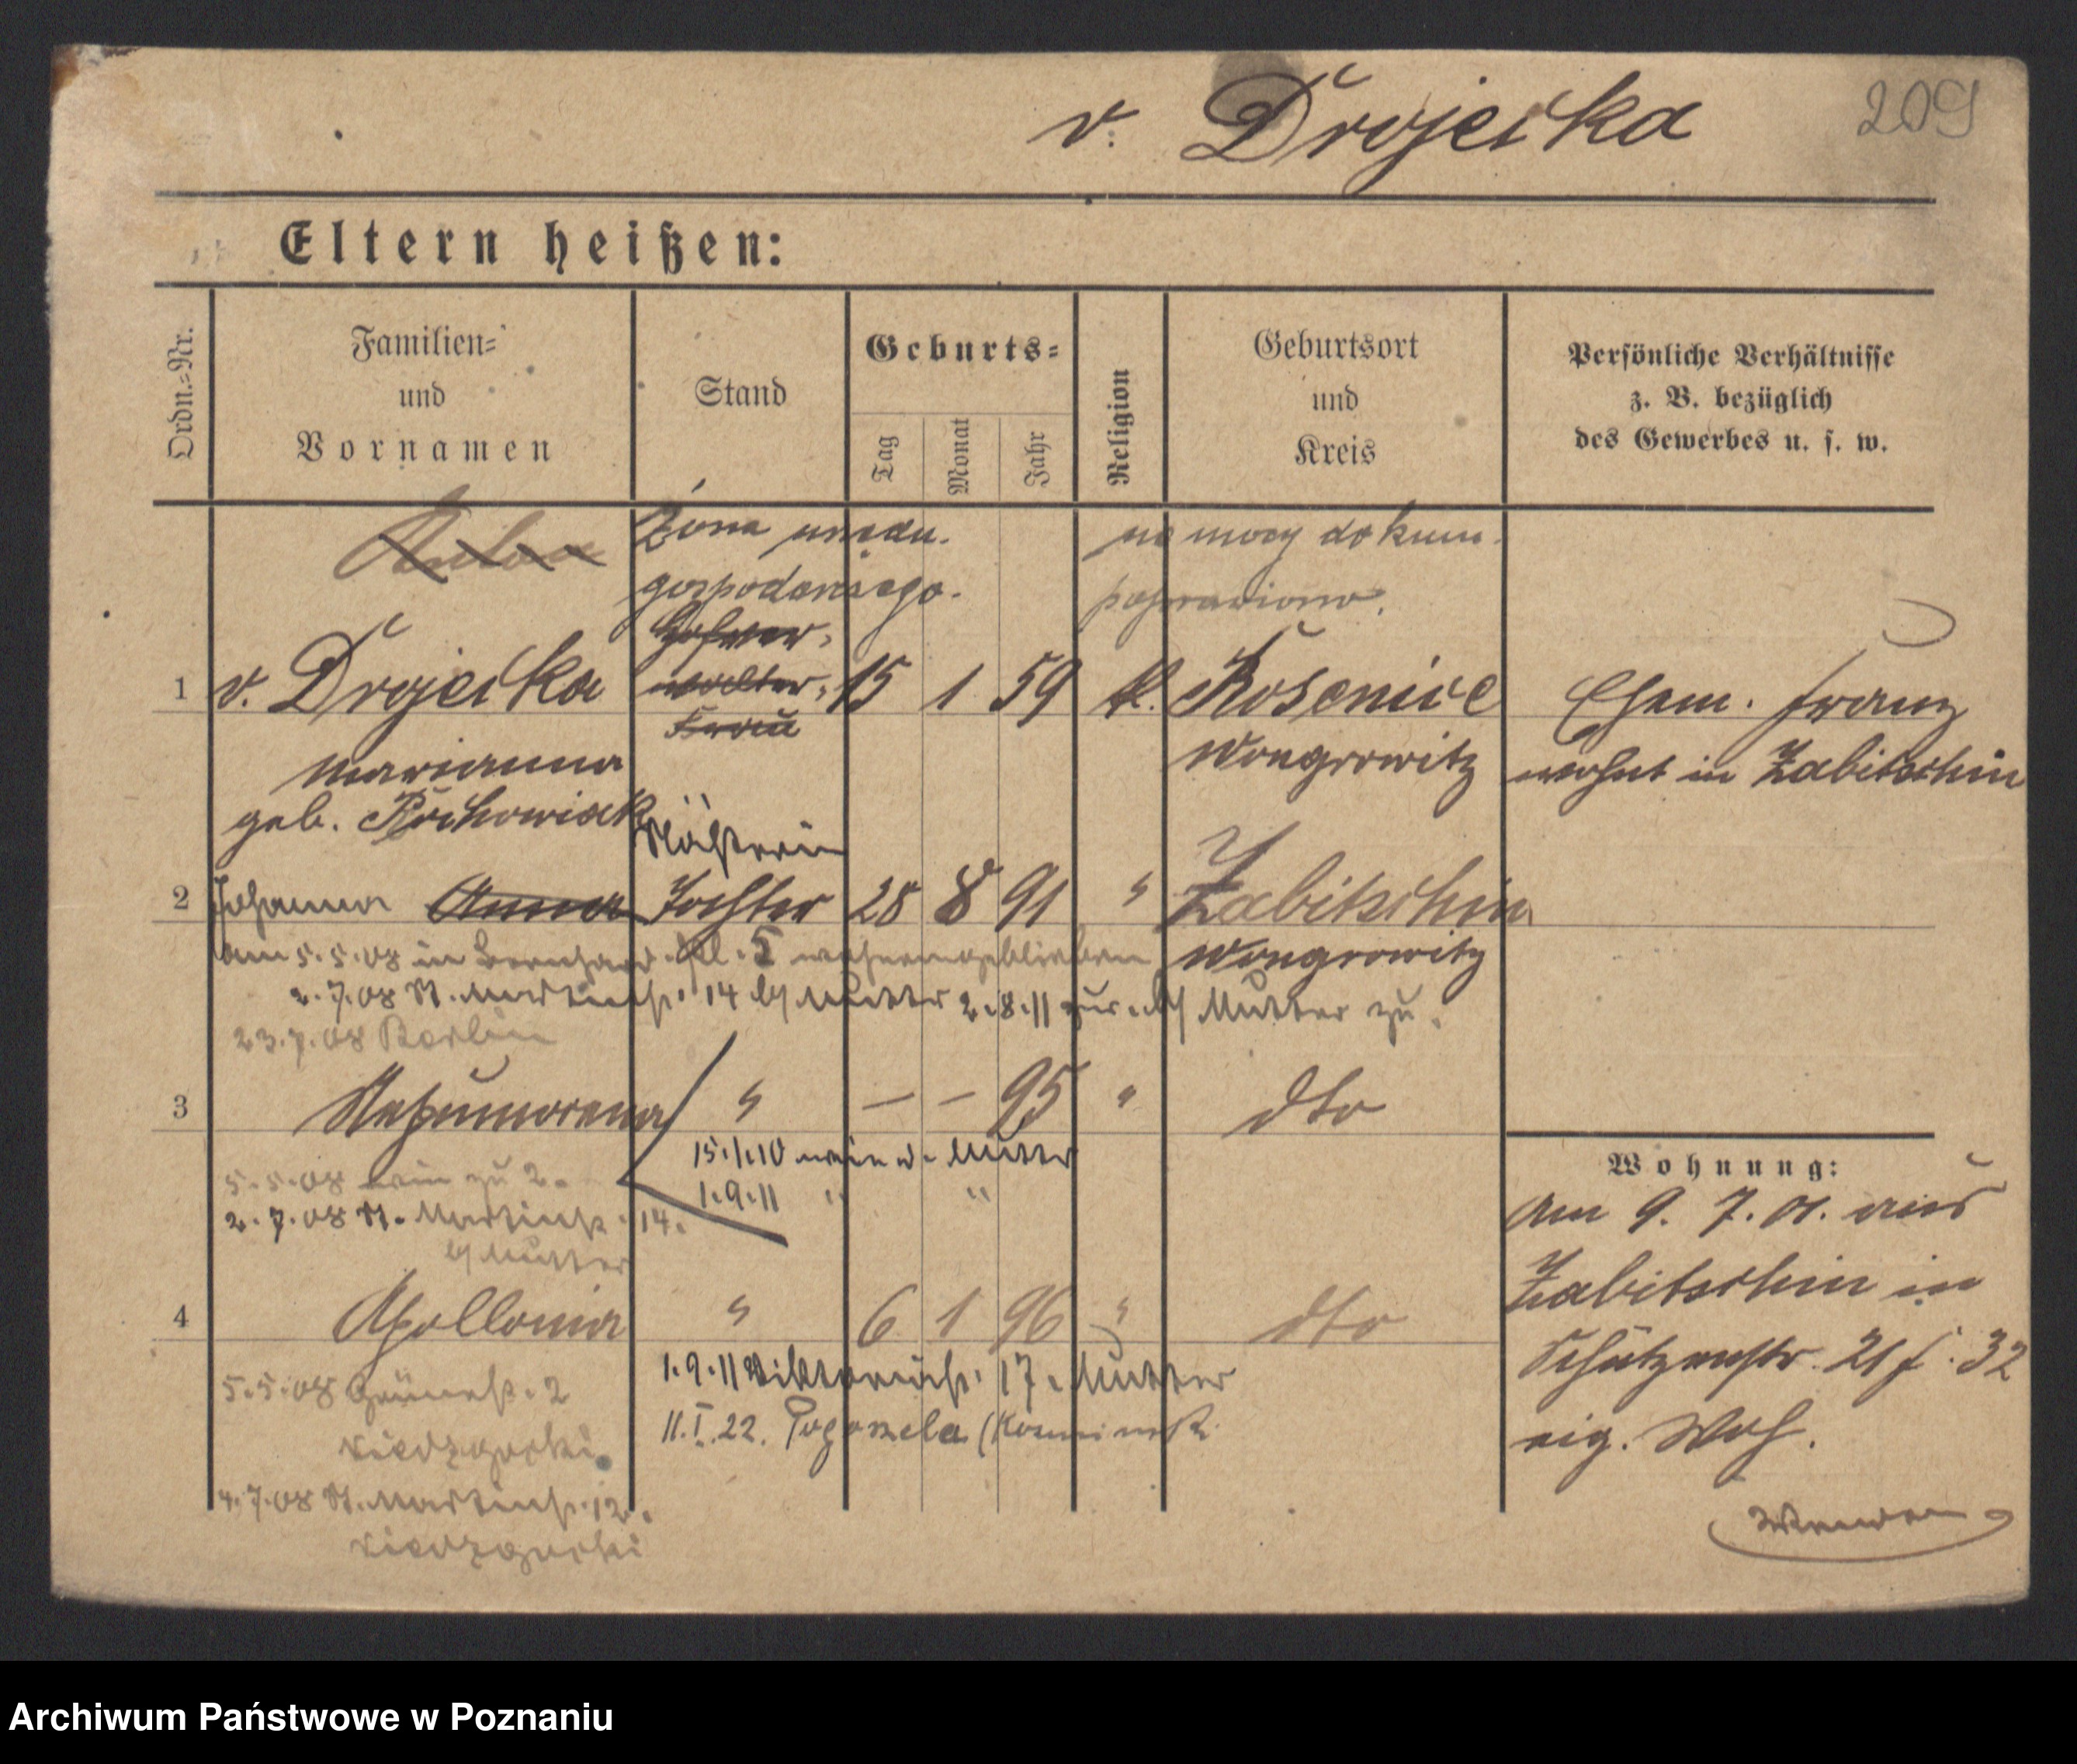 v. Drojecka 209
Eltern heißen:
Ordn.=Nr.
Familien=
und
Vornamen
Stand
Geburts=
Tag
Monat
Jahr
Religion
Geburtsort
und
Kreis
Persönliche Verhältnisse
z. B. bezüglich
des Gewerbes u. s. w.
Żona urzędn. na mocy dokum.
gospodarczego. poprawiono.
1 v. Drojecka 15 1 59 k. Rosenice Ehem. Franz
Marianna Wongrowitz wohnt in Zabitschin
geb.
Nähterin
2 Johanna Anna Tochter 28 8 91 " Zabitschin
am 5.5.08 in Wongrowitz
2.7.08 St. Martinstr. 14 b/ Mutter 2.8.11 zur b/ Mutter zu.
23.7.08 Berlin
3 " — — 95 " dto
15.1.10 Mutter
1.9.11 " "
5.5.08 wie zu 2.
2.7.08 St. Martinstr. 14.
b/ Mutter
4 Apollonia " 6 1 96 " dto
1.9.11 Viktoriastr. 17. Mutter
5.5.08 Grünestr. 2
11.I.22. Pogorzela
4.7.08 St. Martinstr. 12.
Wohnung:
Am 9. 7. 01. aus
Zabitschin in
Schützenstr. 21 f. 32
eig. Woh.
Archiwum Państwowe w Poznaniu